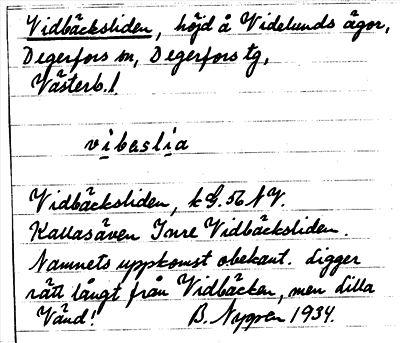 Vidbäcksliden, höjd å Videlunds ägor,
Degerfors sn, Degerfors tg,
Västerb. l
vibaslia
Vidbäcksliden, k bl. 56 NV.
Kallas även Inre Vidbäcksliden.
Namnets uppkomst obekant. Ligger
rätt långt från Vidbäcken, men dilla
Vänd! B. Nygren 1934.